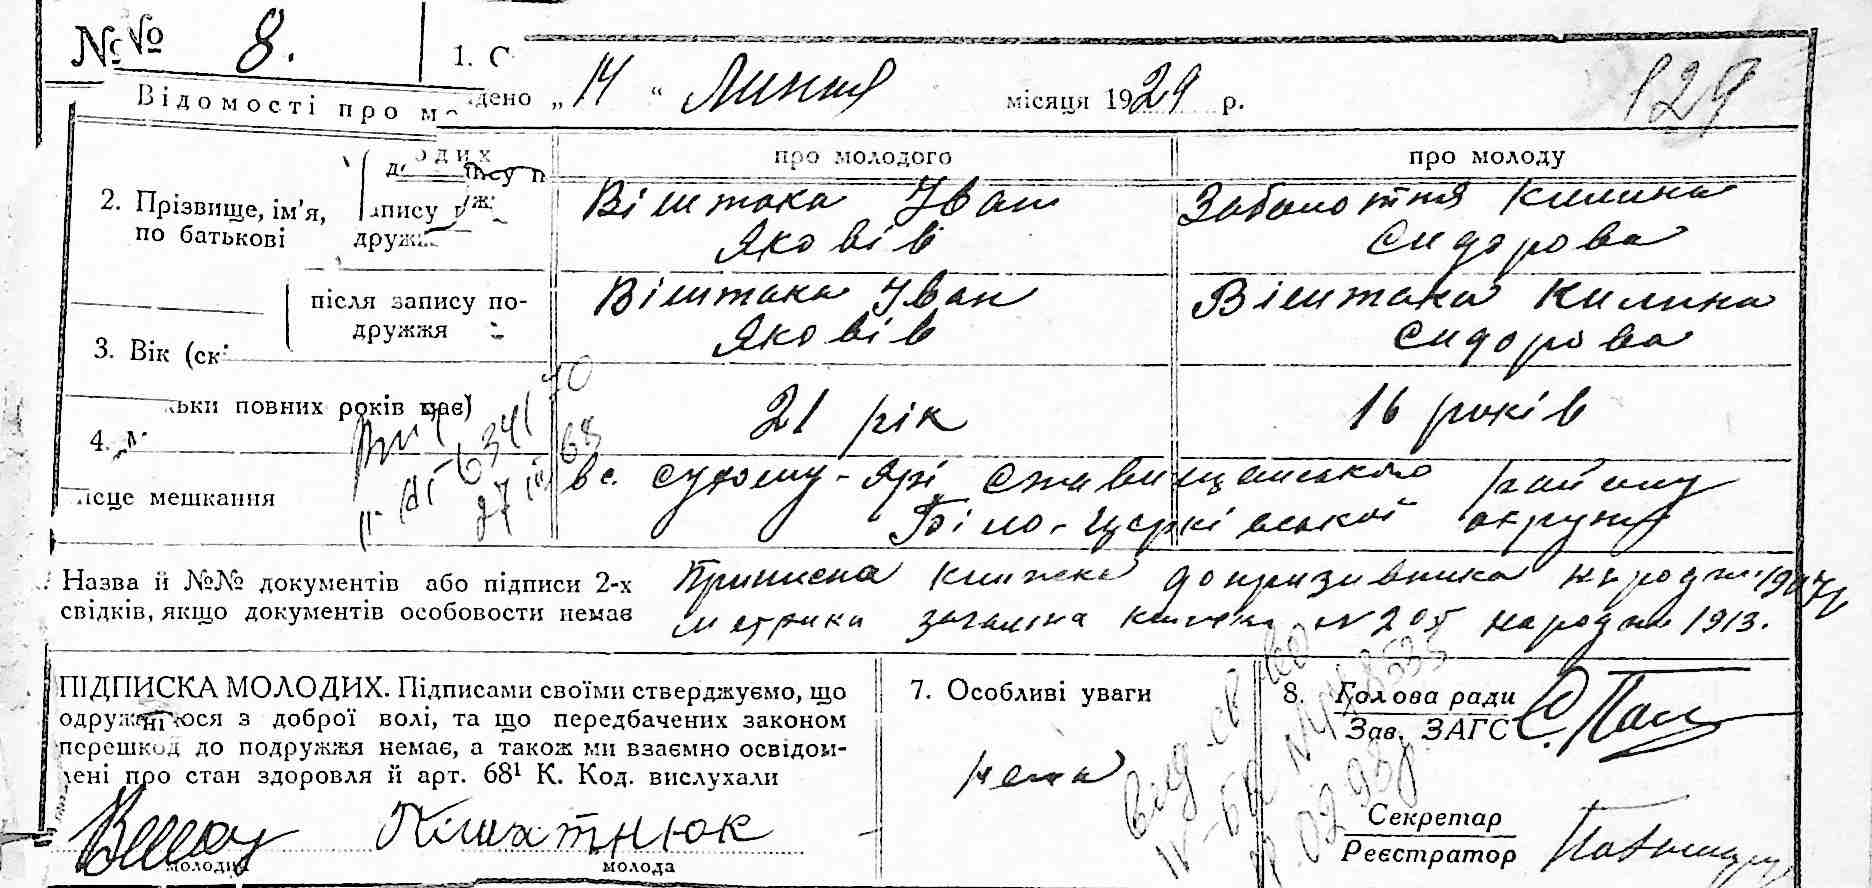 № № 8.
1. С
дено „14“ Липня місяця 1929 р.
129
Відомості про мо
одих
про молодого
про молоду
2. Прізвище, ім'я, по батькові
запису
друж
Віштака Іван
Яковів
Заболотня Килина
Сидорова
після запису по-
дружжя
Віштака Іван
Яковів
Віштака Килина
Сидорова
3. Вік (ск
льки повних років має)
21 рік
16 років
4. М
ісце мешкання
в с. Сухому-Ярі Ставищенського району
Біло-Церківської округи
Назва й №№ документів або підписи 2-х
свідків, якщо документів особовости немає
Приписна книжка допризивника народж. 1907 р
метрика загальна книжка № 205 народж 1913.
ПІДПИСКА МОЛОДИХ. Підписами своїми стверджуємо, що
одружуюся з доброї волі, та що передбачених законом
перешкод до подружжя немає, а також ми взаємно освідом-
лені про стан здоровля й арт. 68¹ К. Код. вислухали
молодий
молода
7. Особливі уваги
нема
8. Голова ради
Зав. ЗАГС
Секретар
Реєстратор